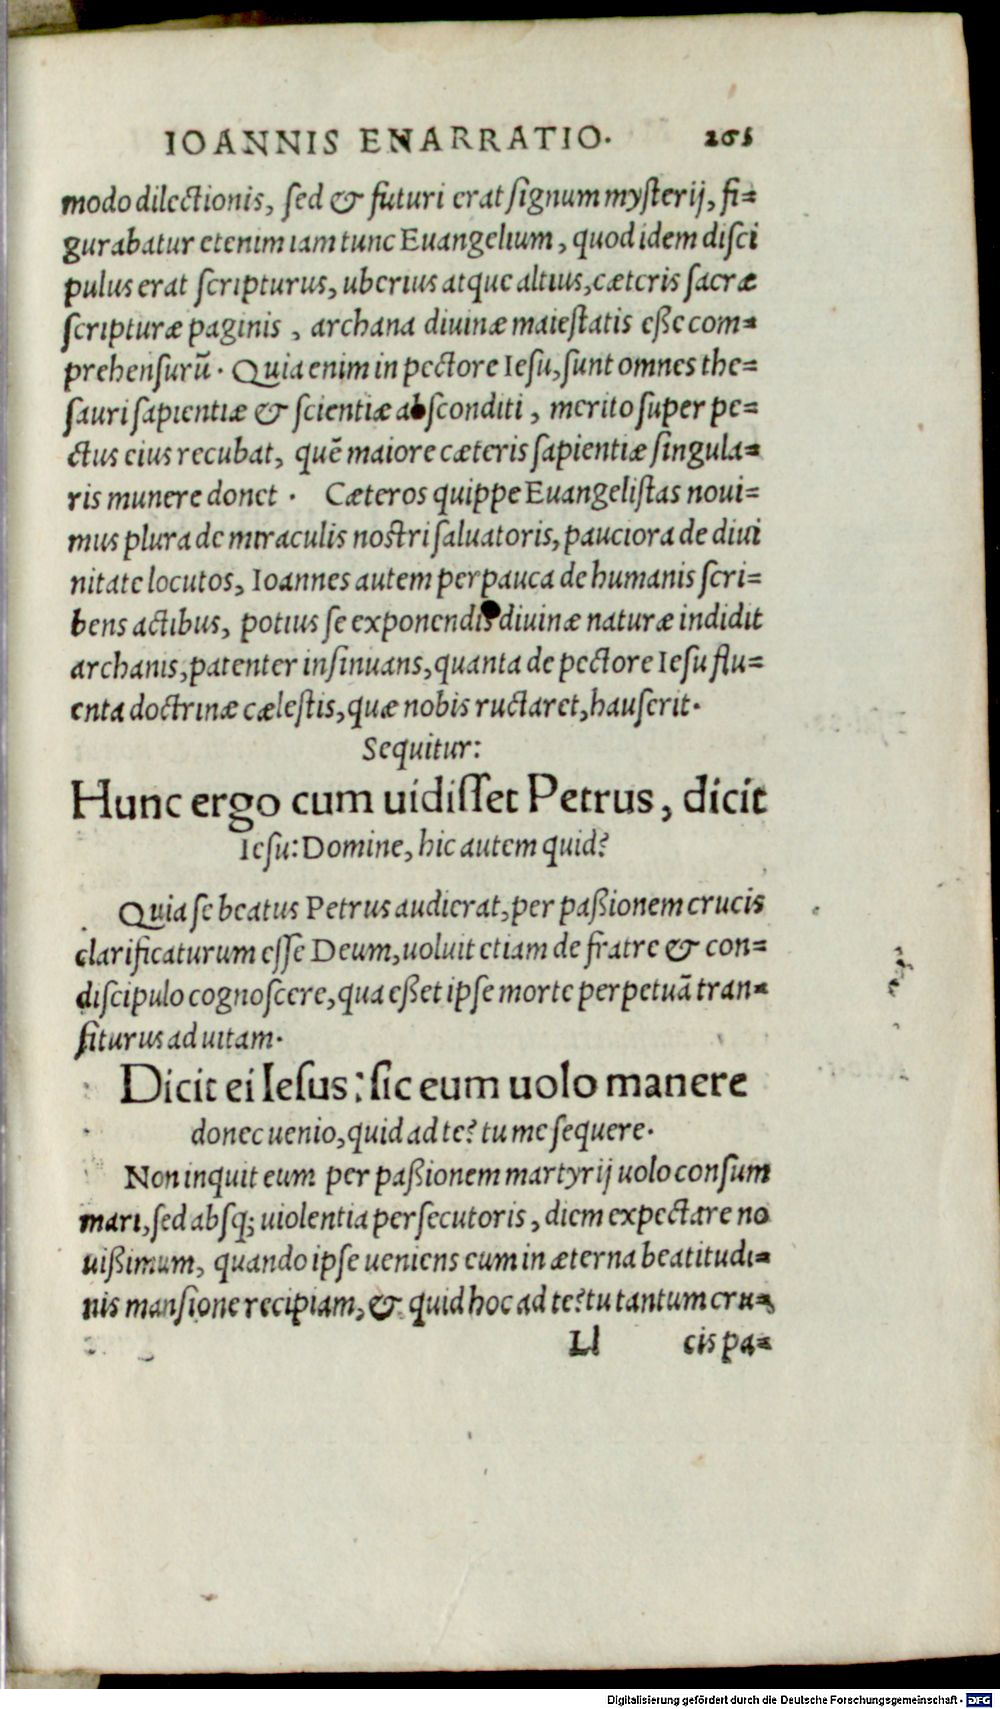 IOANNIS ENARRATIO. 265
modo dilectionis, sed & futuri erat signum mysterij, fi=
gurabatur etenim iam tunc Euangelium, quod idem disci
pulus erat scripturus, uberius atque altius, cæteris sacræ
scripturæ paginis, archana diuinæ maiestatis eße com=
prehensurū. Quia enim in pectore Iesu, sunt omnes the=
sauri sapientiæ & scientiæ absconditi, merito super pe=
ctus eius recubat, quē maiore cæteris sapientiæ singula=
ris munere donet. Cæteros quippe Euangelistas noui=
mus plura de miraculis nostri saluatoris, pauciora de diui
nitate locutos, Ioannes autem perpauca de humanis scri=
bens actibus, potius se exponendis diuinæ naturæ indidit
archanis, patenter insinuans, quanta de pectore Iesu flu=
enta doctrinæ cælestis, quæ nobis ructaret, hauserit.
Sequitur:
Hunc ergo cum uidisset Petrus, dicit
Iesu: Domine, hic autem quid?
Quia se beatus Petrus audierat, per paßionem crucis
clarificaturum esse Deum, uoluit etiam de fratre & con=
discipulo cognoscere, qua eßet ipse morte perpetuā tran=
siturus ad uitam.
Dicit ei Iesus: sic eum uolo manere
donec uenio, quid ad te? tu me sequere.
Non inquit eum per paßionem martyrij uolo consum
mari, sed absq; uiolentia persecutoris, diem expectare no
uißimum, quando ipse ueniens eum in æterna beatitudi=
nis mansione recipiam, & quid hoc ad te? tu tantum cru=
Ll cis pa=
Digitalisierung gefördert durch die Deutsche Forschungsgemeinschaft - DFG